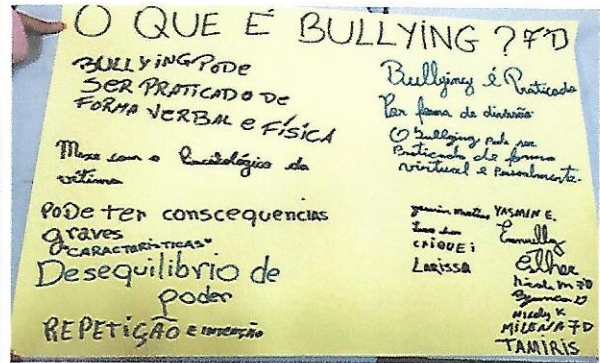 O QUE É BULLYING ? 7ºD
BULLYING PODE
SER PRATICADO DE
FORMA VERBAL e FÍSICA
Mexe com o Psicológico da
vítima
PODe ter conscequencias
graves
"CARACTERÍSTICAS"
Desequilibrio de
poder
REPETIÇÃO E INTENÇÃO
Bullying é Praticado
Por forma de
O bullying pode ser
Praticado de forma
virtual e Pessoalmente.
YASMIN E.
Emanuelly
CAIQUE
Esther
LARISSA
Nicole M 7D
Nicoly K
MILENA 7D
TAMIRIS